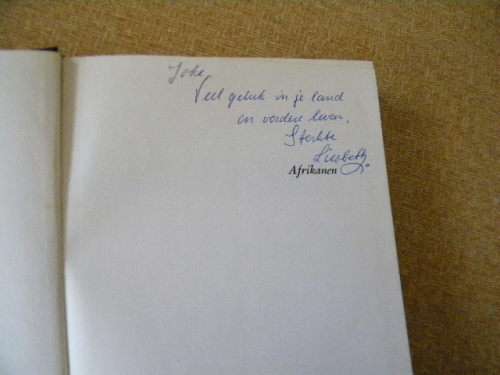 Joke,
Veel geluk in je land
en verdere leven.
Sterkte
Liesbeth
Afrikanen